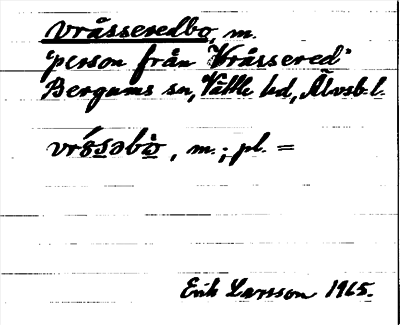 vråsseredbo, m.
"person från Vråssered"
Bergums sn, Vättle hd, Älvsb. l.
vrɷ́s̲əbò̲, m.; pl. =
Erik Larsson 1965.